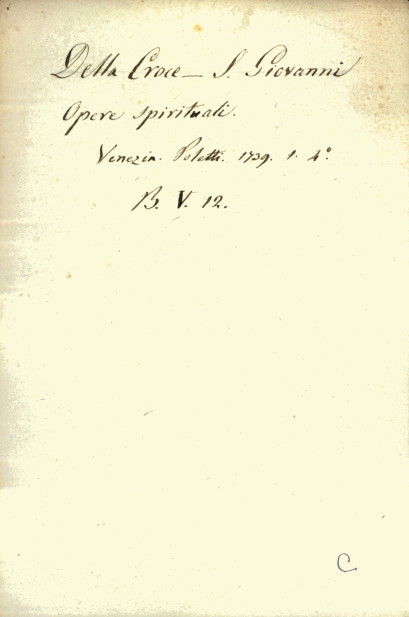 Della Croce — S. Giovanni
Opere spirituali.
Venezia. Poletti. 1739. 1. 4°.
B. V. 12.
C